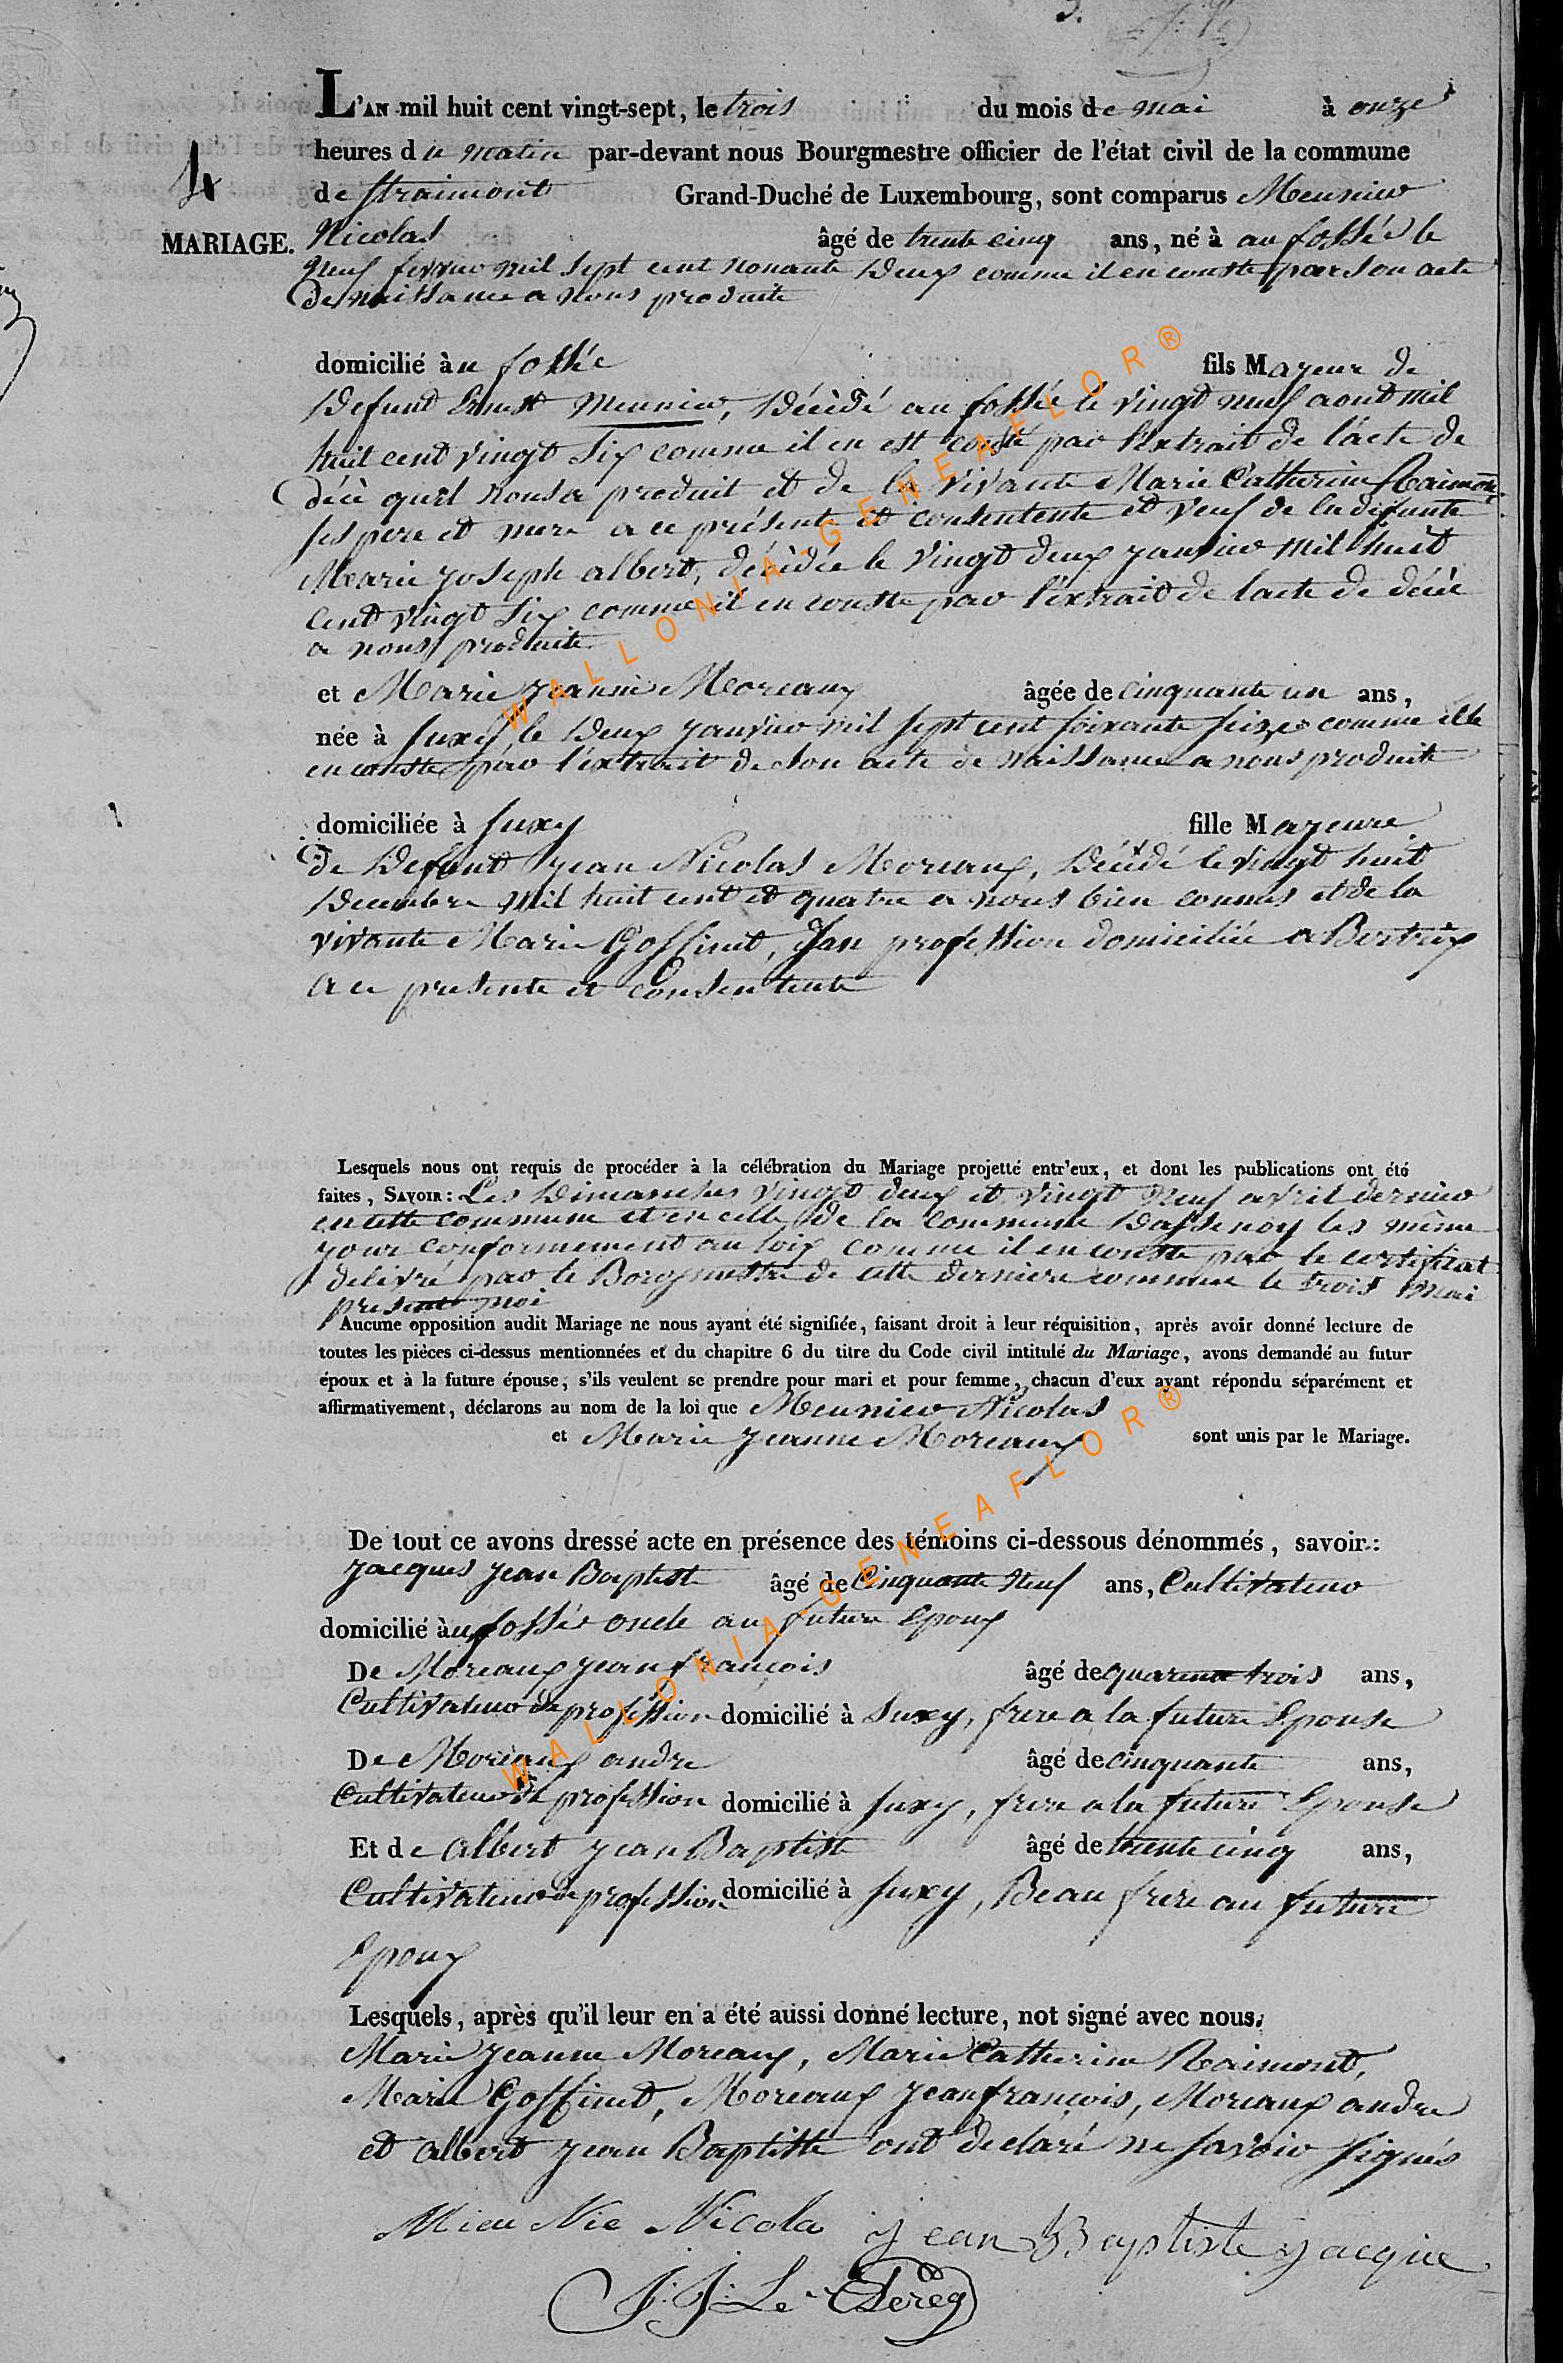 L'AN mil huit cent vingt-sept, le trois du mois de mai à onze
heures du matin par-devant nous Bourgmestre officier de l'état civil de la commune
4
de Straimont Grand-Duché de Luxembourg, sont comparus Meunier
MARIAGE. Nicolas âgé de trente cinq ans, né à au fossés le
neuf fevrier mil sept cent nonante Deux comme il en conste par son acte
de naissance a nous produite
domicilié à u fossés fils Majeur de
Defunt Ernest Meunier, Décédé au fossés le vingt neuf aout mil
huit cent vingt six comme il en est par l'extrait de l'acte de
décè quil nous a produit et de la vivante Marie Catherine Raimont
ses pere et mere a ce présente et consentente et veuf de la defunte
Marie joseph albert, décédée le vingt deux janvier mil huit
cent vingt six comme il en conste par l'extrait de lacte de décè
a nous produite
et Marie jeanne Moreaux âgée de cinquante un ans,
née à Suxy, le Deux janvier mil sept cent soixante seize comme elle
en conste par l'extrait de son acte de naissance a nous produite
domiciliée à Suxy fille Majeure
de Defunt jean Nicolas Moreaux, Décédé le vingt huit
Decembre mil huit cent et quatre a nous bien connus et de la
vivante Marie Goffinet, San profession domiciliée a Bertrix
a ce presente et consentente
Lesquels nous ont requis de procéder à la célébration du Mariage projetté entr'eux, et dont les publications ont été
faites, SAVOIR: Les Dimanches vingt deux et vingt neuf avril dernier
en cette commune et en celle de la commune Dassenoy les même
jour conformement au loix comme il en conste par le certificat
delivré par le Borgmestre de cette derniere commune le trois mai
present moi
Aucune opposition audit Mariage ne nous ayant été signifiée, faisant droit à leur réquisition, après avoir donné lecture de
toutes les pièces ci-dessus mentionnées et du chapitre 6 du titre du Code civil intitulé du Mariage, avons demandé au futur
époux et à la future épouse, s'ils veulent se prendre pour mari et pour femme, chacun d'eux ayant répondu séparément et
affirmativement, déclarons au nom de la loi que Meunier Nicolas
et Marie jeanne Moreaux sont unis par le Mariage.
De tout ce avons dressé acte en présence des témoins ci-dessous dénommés, savoir:
jacques jean Baptiste âgé de Cinquante neuf ans, Cultivateur
domicilié à u fossés oncle au future Epoux
De Moreaux jean francois âgé de quarente trois ans,
Cultivateur de profession domicilié à Suxy, frere a la future Epouse
De Moreaux andre âgé de cinquante ans,
Cultivateur de profession domicilié à Suxy, frere a la future Epouse
Et de albert jean Baptiste âgé de trente cinq ans,
Cultivateur de profession domicilié à Suxy, Beau frere au future
Epoux
Lesquels, après qu'il leur en a été aussi donné lecture, not signé avec nous.
Marie jeanne Moreaux, Marie Catherine Raimont,
Marie Goffinet, Moreaux jean francois, Moreaux andre
et albert jean Baptiste ont declaré ne savoir signés
Mieu Nie Nicola jean Baptiste jacque
J: J: Le Clercq
WALLONIA-GENEAFLOR®
WALLONIA-GENEAFLOR®